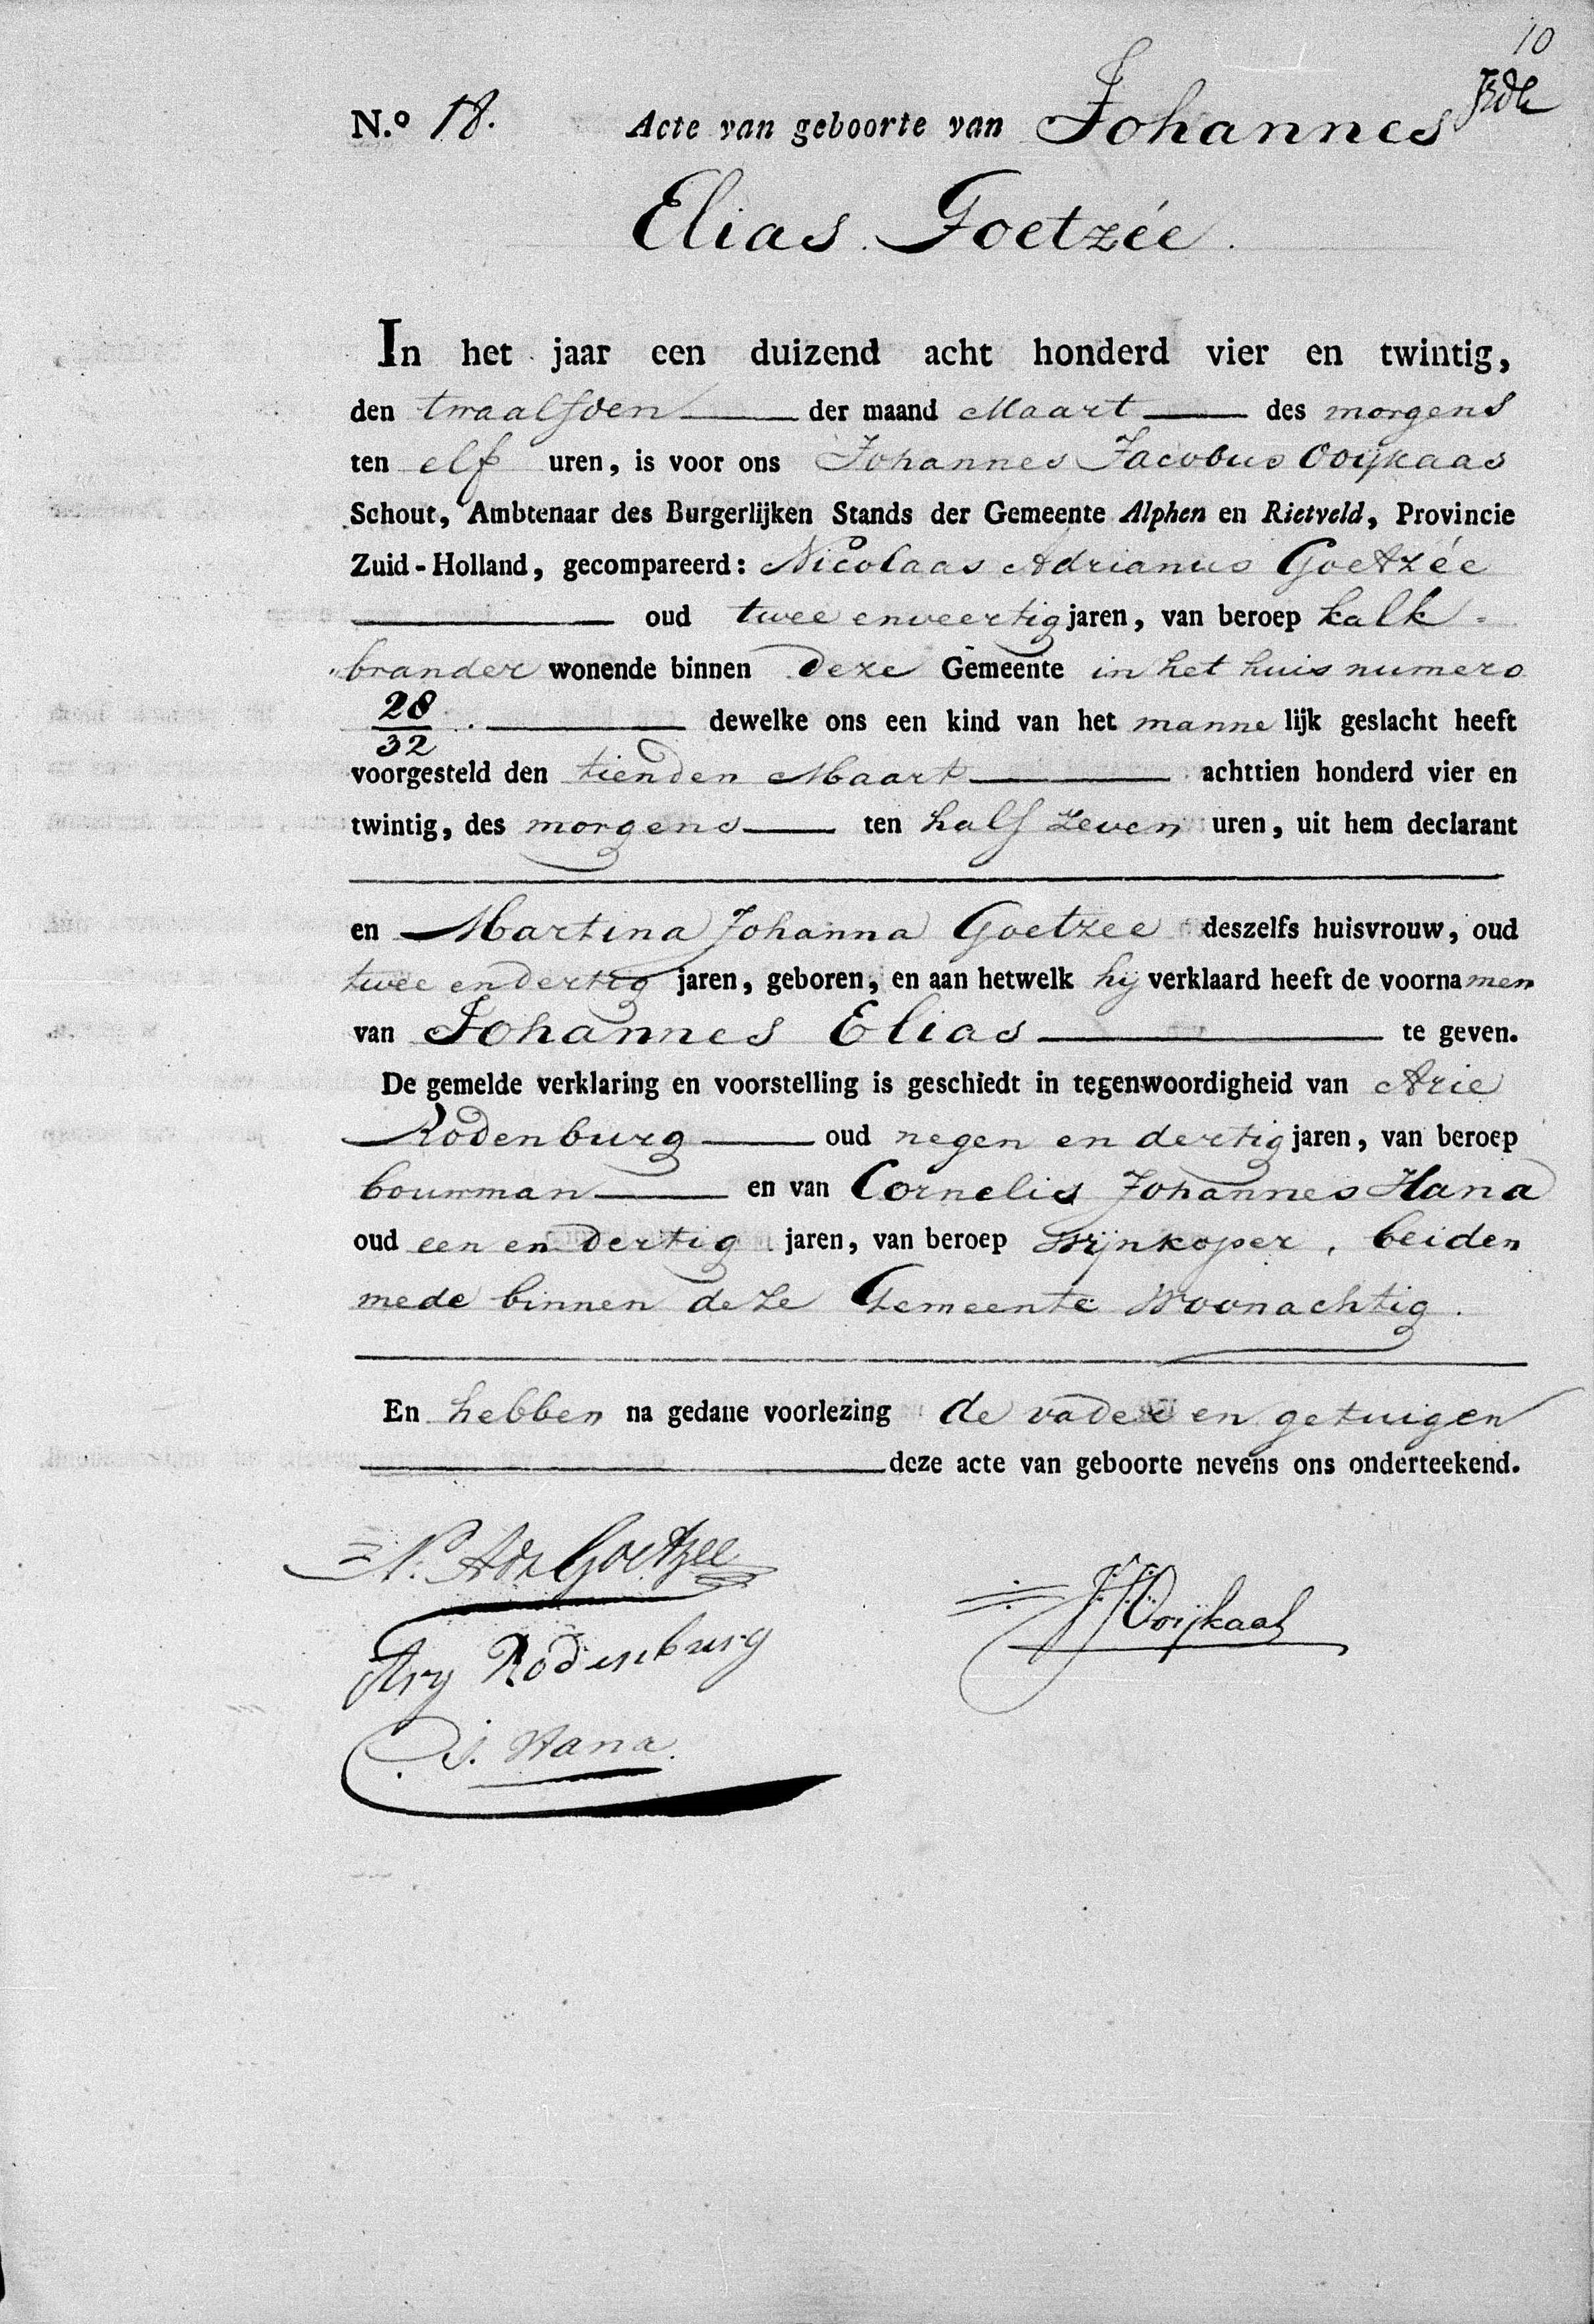 10
N.o 18. Acte van geboorte van Johannes
Elias Goetzée.
In het jaar een duizend acht honderd vier en twintig,
den twaalfden der maand Maart des morgens
ten elf uren, is voor ons Johannes Jacobus Ooijkaas
Schout, Ambtenaar des Burgerlijken Stands der Gemeente Alphen en Rietveld, Provincie
Zuid-Holland, gecompareerd: Nicolaas Adrianus Goetzée
oud twee enveertig jaren, van beroep kalk-
brander wonende binnen deze Gemeente in het huis numero
28/32 dewelke ons een kind van het manne lijk geslacht heeft
voorgesteld den tienden Maart achttien honderd vier en
twintig, des morgens ten half zeven uren, uit hem declarant
en Martina Johanna Goetzee deszelfs huisvrouw, oud
twee en dertig jaren, geboren, en aan hetwelk hij verklaard heeft de voornamen
van Johannes Elias te geven.
De gemelde verklaring en voorstelling is geschiedt in tegenwoordigheid van Arie
Rodenburg oud negen en dertig jaren, van beroep
bouwman en van Cornelis Johannes Hana
oud een en dertig jaren, van beroep Wijnkoper, beiden
mede binnen deze Gemeente Woonachtig.
En hebben na gedane voorlezing de vader en getuigen
deze acte van geboorte nevens ons onderteekend.
N. Adr Goetzee
JJOoijkaas
Ary Rodenburg
C. J. Hana.